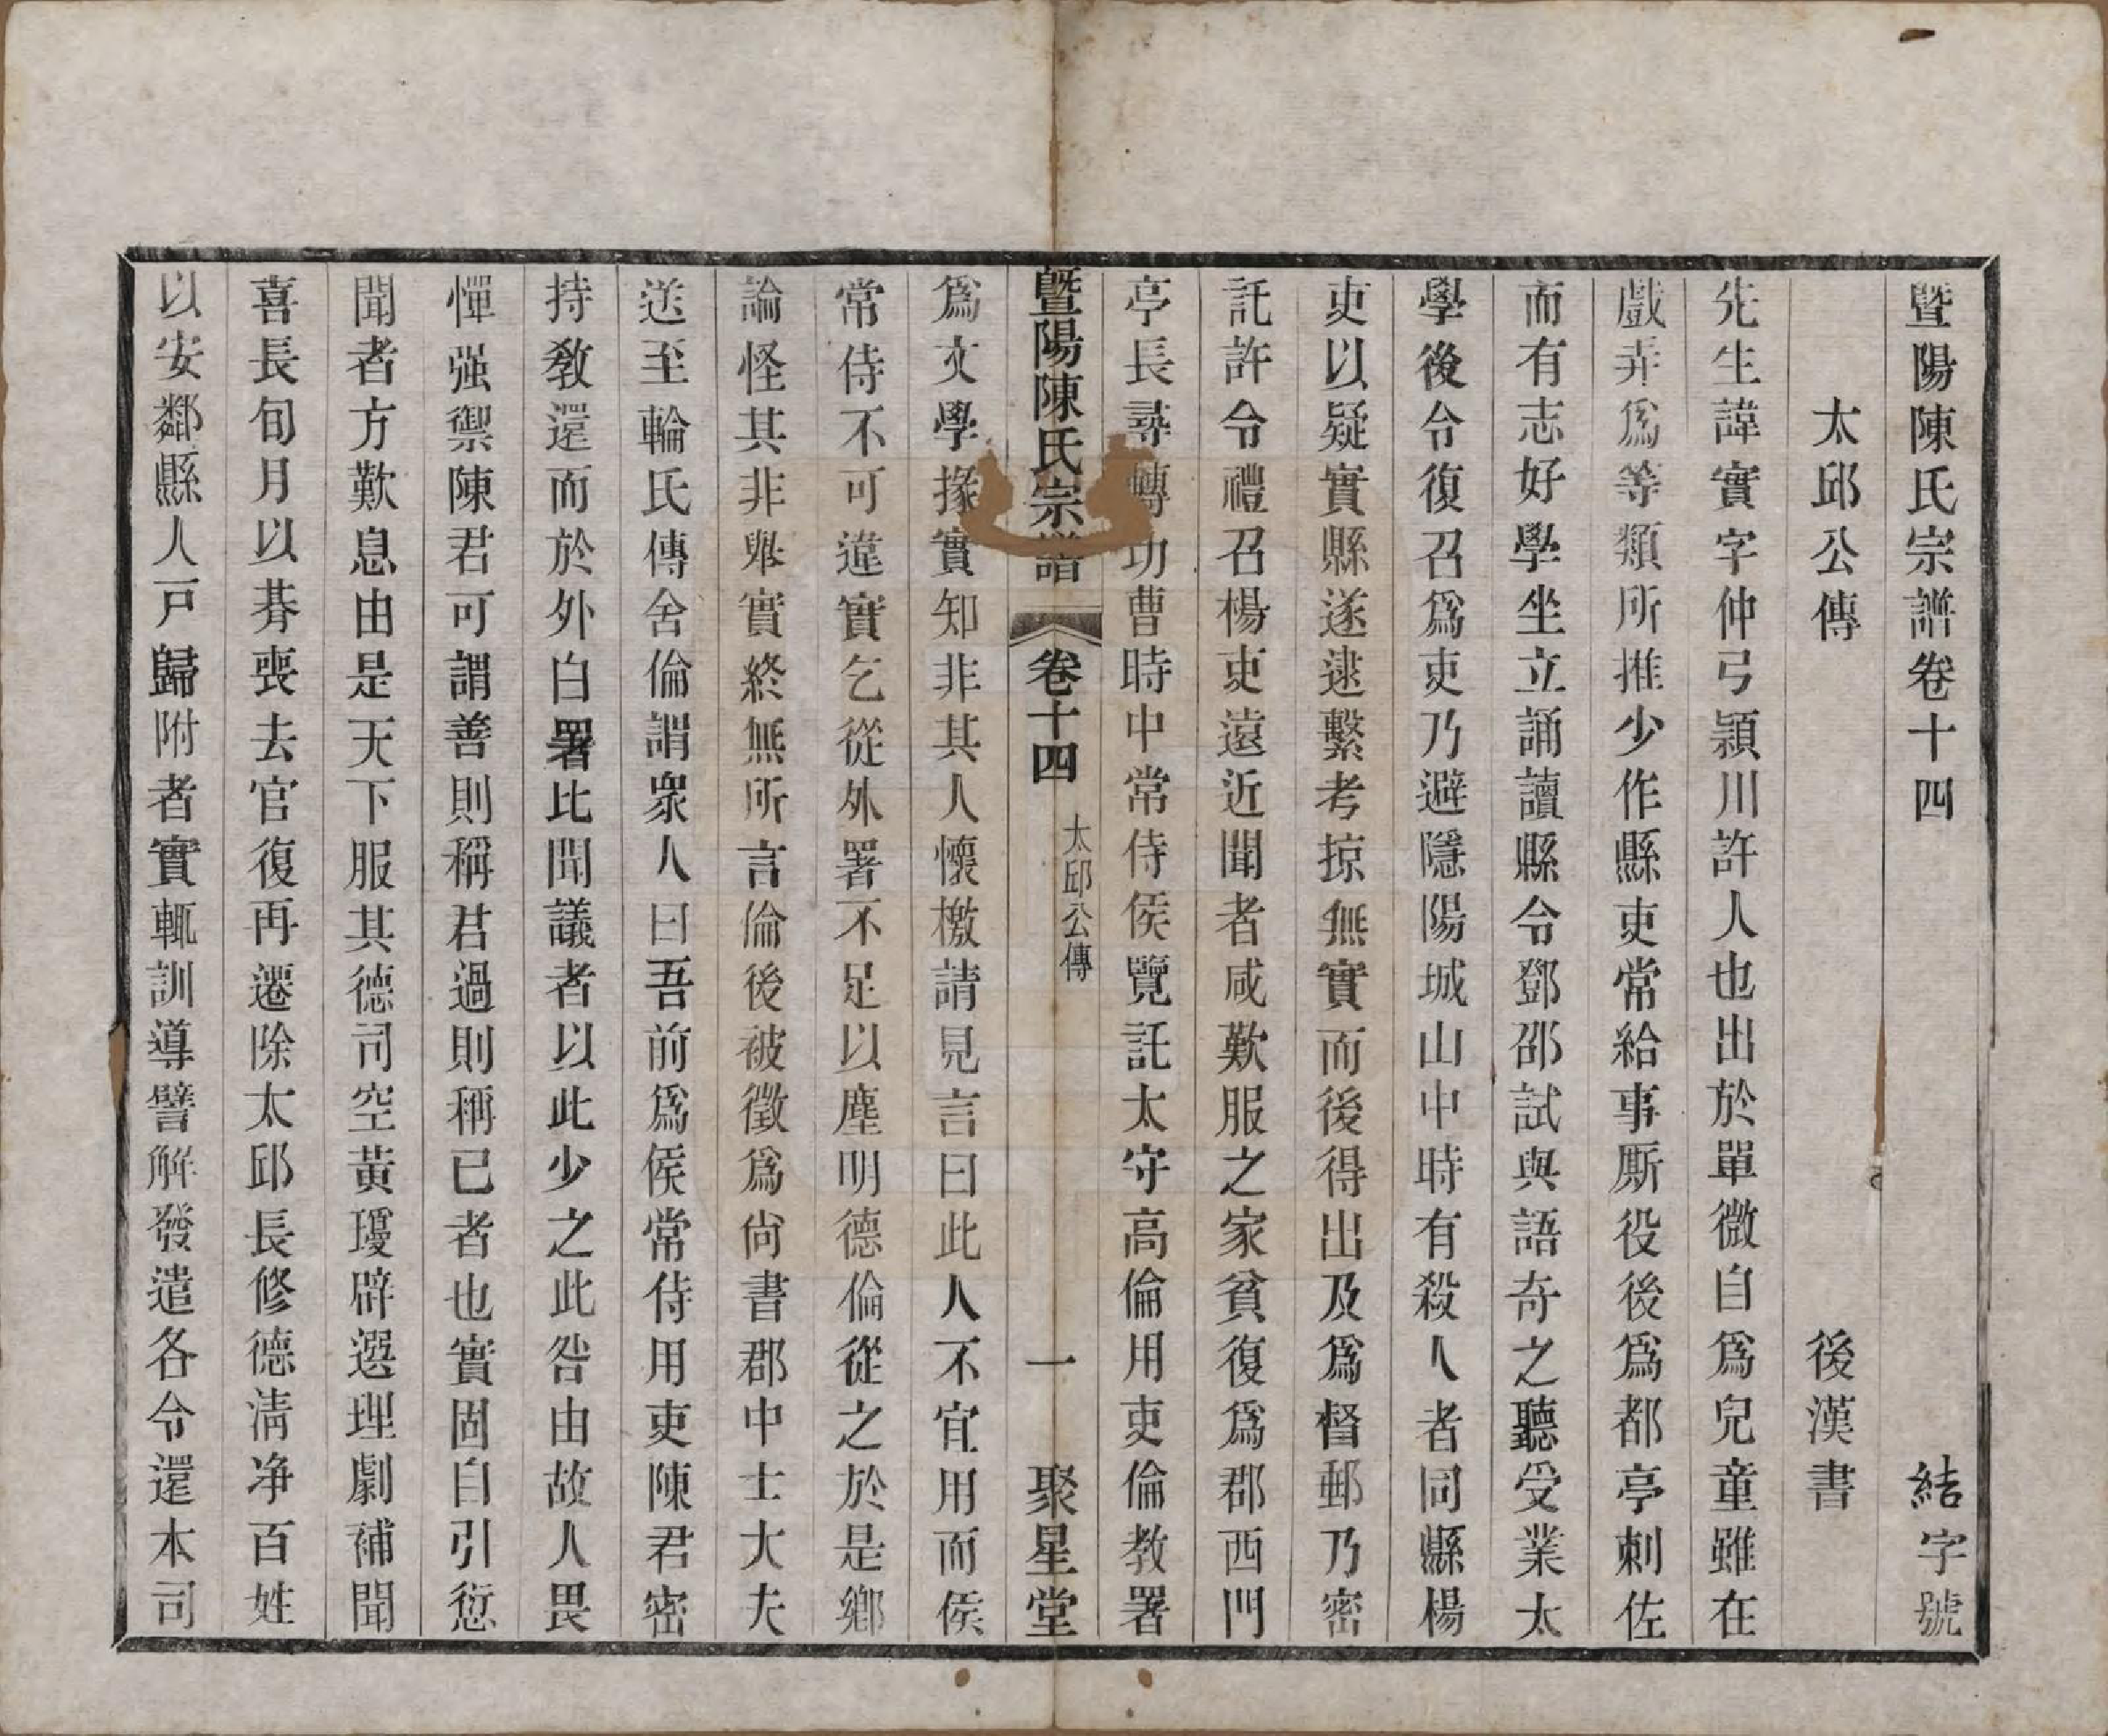 暨陽陳氏宗譜卷十四　結字號
太邱公傳　後漢書
先生諱實字仲弓潁川許人也出於單微自爲兒童雖在
戲弄爲等類所推少作縣吏常給事厮役後爲都亭刺佐
而有志好學坐立誦讀縣令鄧邵試與語奇之聽受業太
學後令復召爲吏乃避隱陽城山中時有殺人者同縣楊
吏以疑實縣遂逮繫考掠無實而後得出及爲督郵乃密
託許令禮召楊吏遠近聞者咸歎服之家貧復爲郡西門
亭長尋轉功曹時中常侍侯覽託太守高倫用吏倫教署
暨陽陳氏宗譜　卷十四　太邱公傳　一　聚星堂
爲文學掾實知非其人懷檄請見言曰此人不宜用而侯
常侍不可違實乞從外署不足以塵明德倫從之於是鄉
論怪其非舉實終無所言倫後被徵爲尙書郡中士大夫
送至輪氏傳舍倫謂衆人曰吾前爲侯常侍用吏陳君密
持敎還而於外白署比聞議者以此少之此咎由故人畏
憚强禦陳君可謂善則稱君過則稱已者也實固自引愆
聞者方歎息由是天下服其德司空黃瓊辟選理劇補聞
喜長旬月以朞喪去官復再遷除太邱長修德淸净百姓
以安鄰縣人戸歸附者實輒訓導譬解發遣各令還本司